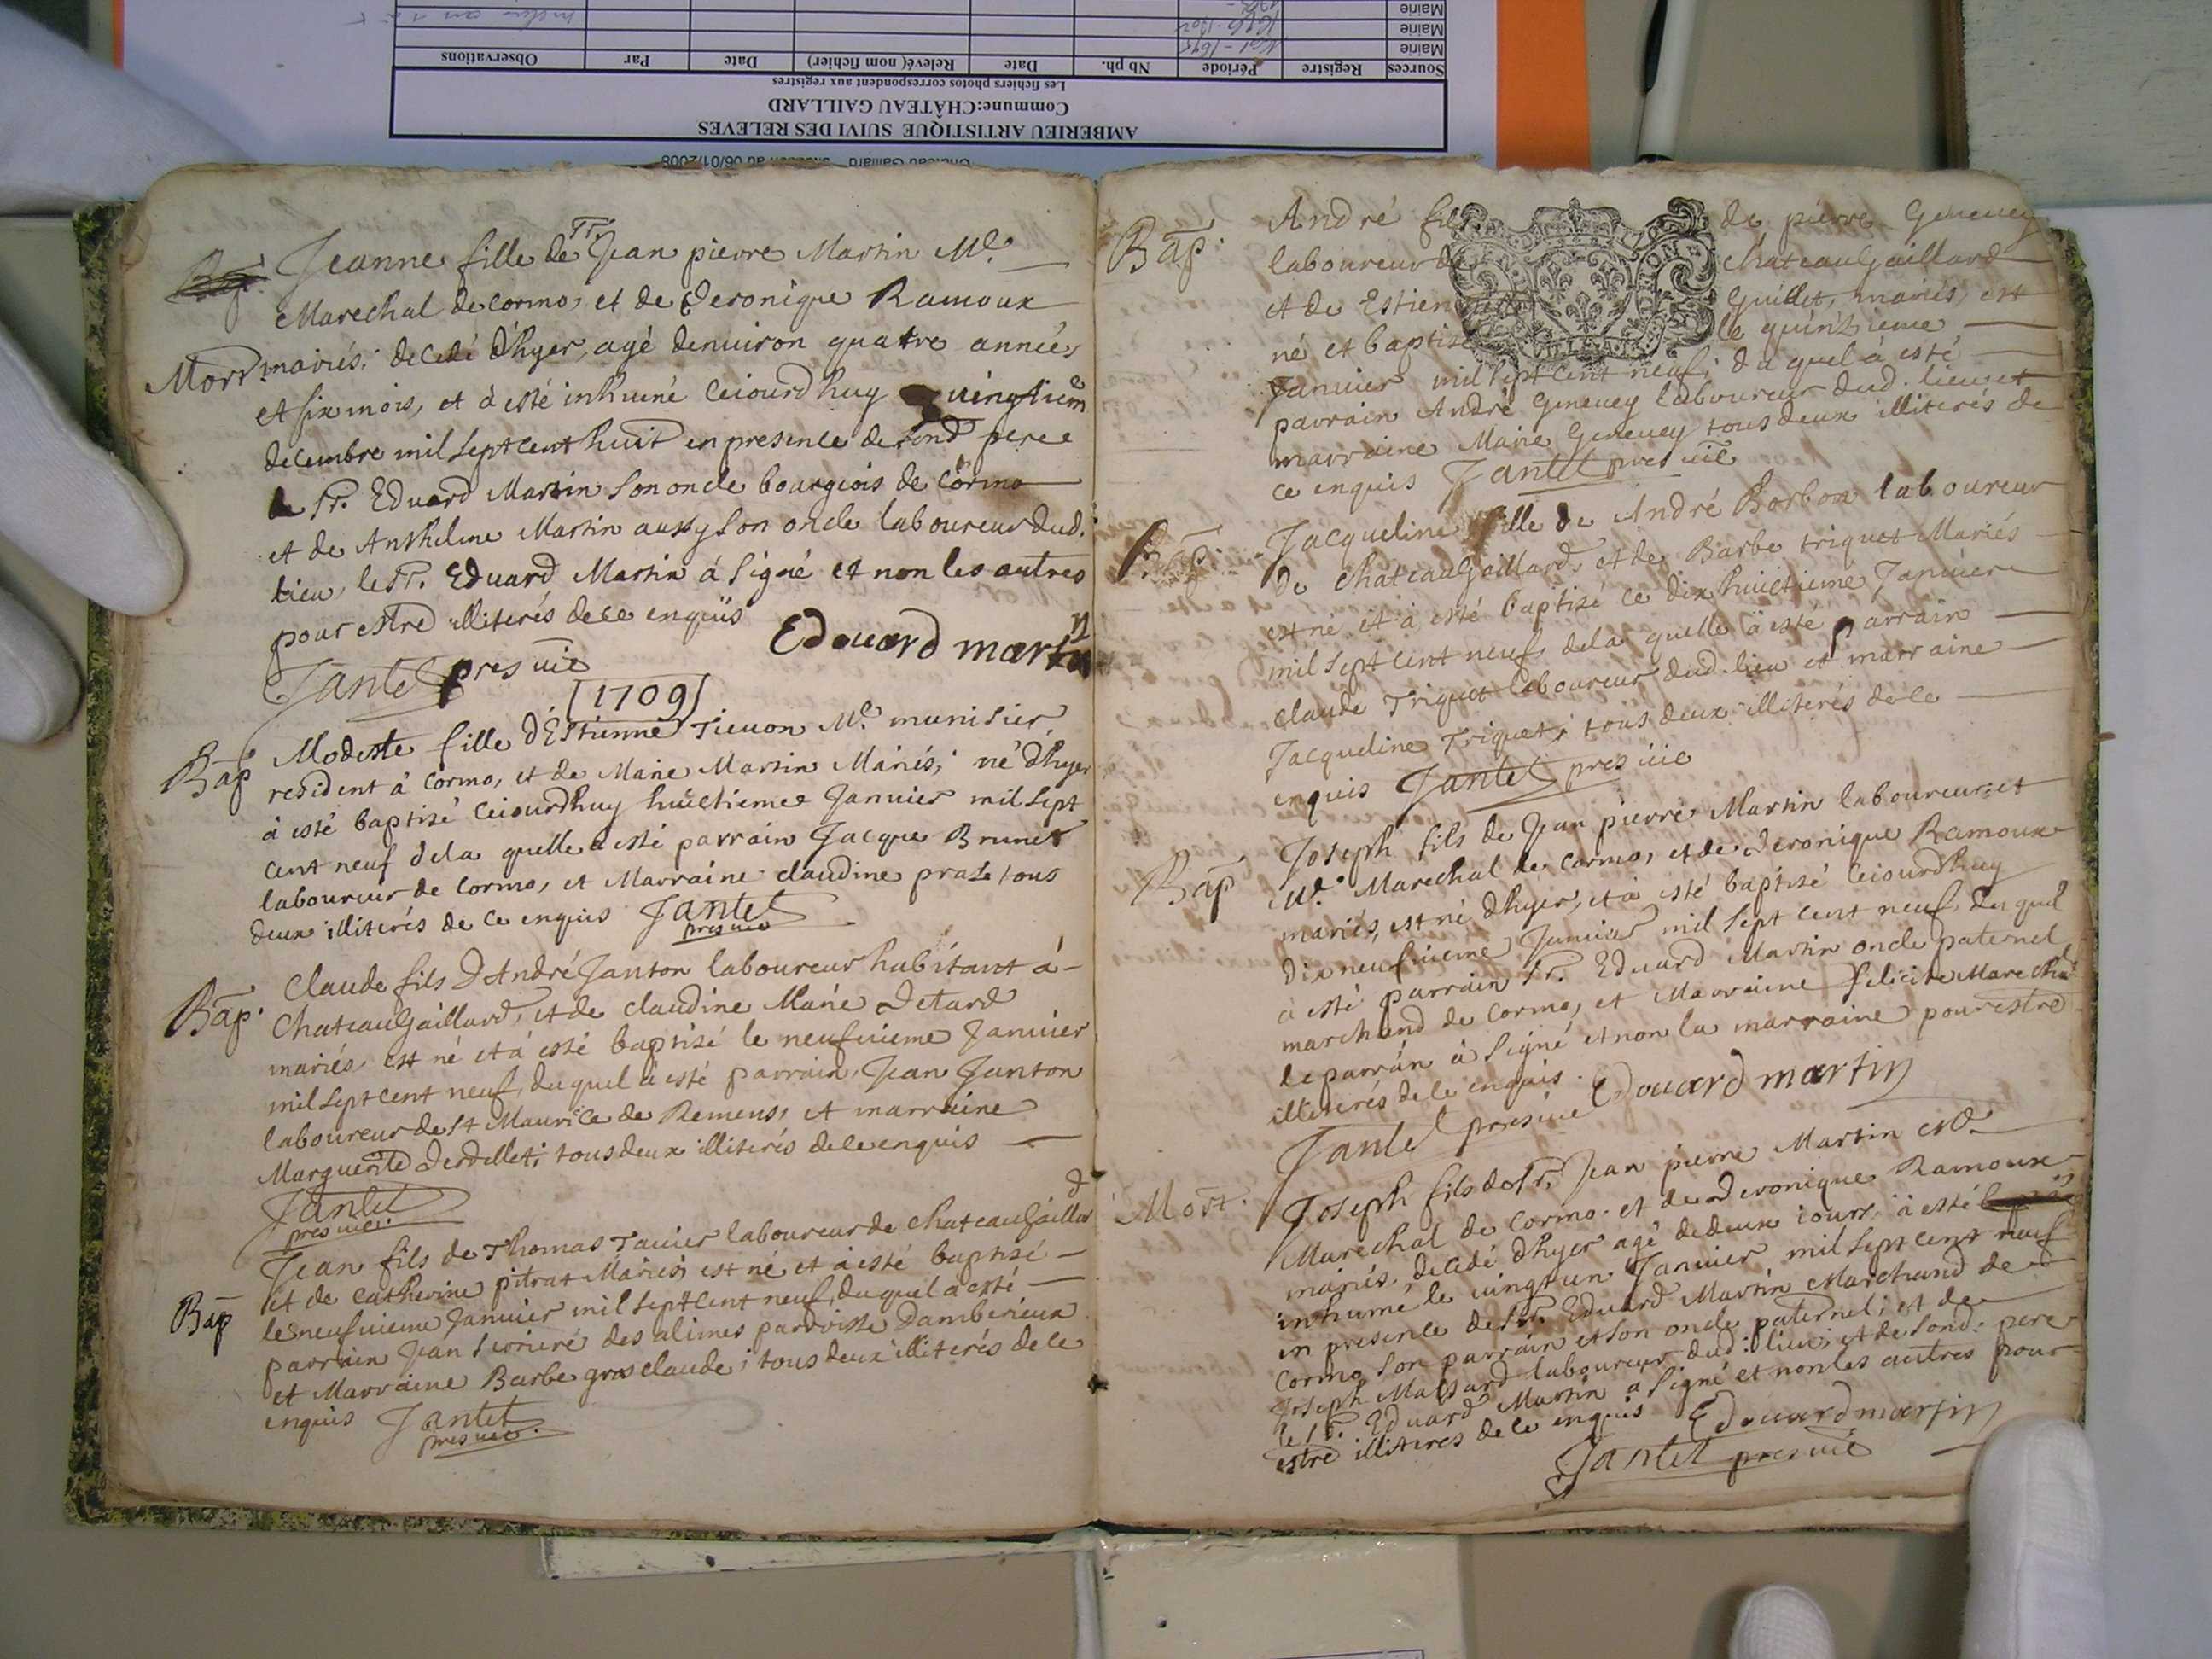 AMBERIEU ARTISTIQUE SUIVI DES RELEVES
Commune:CHÂTEAU GAILLARD
Les fichiers photos correspondent aux registres
Sources Registre Période Nb ph. Date Relevé( nom fichier) Date Par Observations
Mairie
Mairie
Mairie
Jeanne fille de Sr. Jean pierre Martin Me.
Marechal de Cormo, et de Veronique Ramoux
Mort mariés; decedé d'hyer, agé denuiron quatre années
et six mois, et à esté inhumé ceiourdhuy vingtiem
decembre mil sept cent huit en presence de sond pere
Sr. Eduard Martin son oncle bourgiois de Cormo
et de Anthelme Martin aussy son oncle laboureur dud.
lieu, le Sr. Eduard Martin à signé et non les autres
pour estre illiterés de ce enquis
Edouard martin
Jantet pres vic
[1709]
Bap Modeste fille d'Estienne Tieuon Me. munisier
resident à Cormo, et de Marie Martin Mariés; né d'hyer
à esté baptizé ceiourdhuy huictieme Januier mil sept
cent neuf dela quelle à esté parrain Jacque Brunet
laboureur de Cormo, et Marraine claudine prast tous
deux illiterés de ce enquis Jantet
pres vic
Bap. Claude fils D'André Janton laboureur habitant à
Chateaugaillard, et de claudine Marie Detard
mariés, est né et à esté baptisé le neufuieme Januier
mil sept cent neuf, duquel à esté parrain, Jean Janton
laboureur de St Maurice de Remens, et marraine
Marguerite Derdellet; tous deux illiterés de ce enquis
Jantet
pres vic.
Jean fils de Thomas Tauier laboureur de Chateaugaillard
et de Catherine pitrat Mariés est né et à esté baptisé
Bap le neufuieme Januier mil sept cent neuf, duquel à esté
parrain Jean serriere des alimes parroisse Damberieux
et Marraine Barbe gros claude; tous deux illiterés de ce
enquis Jantet
pres vic.
Bap. André fils de pierre Geneuey
laboureur de chateaugaillard
et de Estiennette Guillet, mariés, est
né et baptisé le quinzieme
Januier mil sept cent neuf; du quel à esté
parrain André Geneuey laboureur dud. lieu et
marraine Marie Geneuey tous deux illiterés de
ce enquis Jantet pres vic
Bap. Jacqueline fille de André Borbon laboureur
de chateaugaillard, et de Barbe triquet Mariés
est né et à esté baptizé ce dix huictieme Januier
mil sept cent neuf, dela quelle à esté parrain
Claude Triquet laboureur dud. lieu et marraine
Jacqueline Triquet; tous deux illiterés de ce
enquis Jantet pres vic
Bap Joseph fils de Jean pierre Martin laboureur et
Me. Marechal de Cormo, et de Veronique Ramoux
mariés, est né d'hyer, et à esté baptisé ceiourdhuy
dix neufuieme Januier mil sept cent neuf, du quel
à esté parrain Sr. Eduard Martin oncle paternel
marchand de Cormo, et Marraine felicite Marechal
le parrain à signé et non la marraine pour estre
illiterés de ce enquis. Edouard martin
Jantet pres vic
Mort. Joseph fils de Sr. Jean pierre Martin Me.
Marechal de Cormo. et de Veronique Ramoux
mariés, decedé d'hyer agé de deux iours, à esté
inhumé le vingt un Januier mil sept cent neuf
en presence de Sr. Eduard Martin Marchand de
Cormo son parrain et son oncle paternel; et de
Joseph Massard laboureur dud. lieu; et de sond. pere
le Sr. Eduard Martin a signé et non les autres pour
estre illiteres de ce enquis Edouard martin
Jantet pres vic